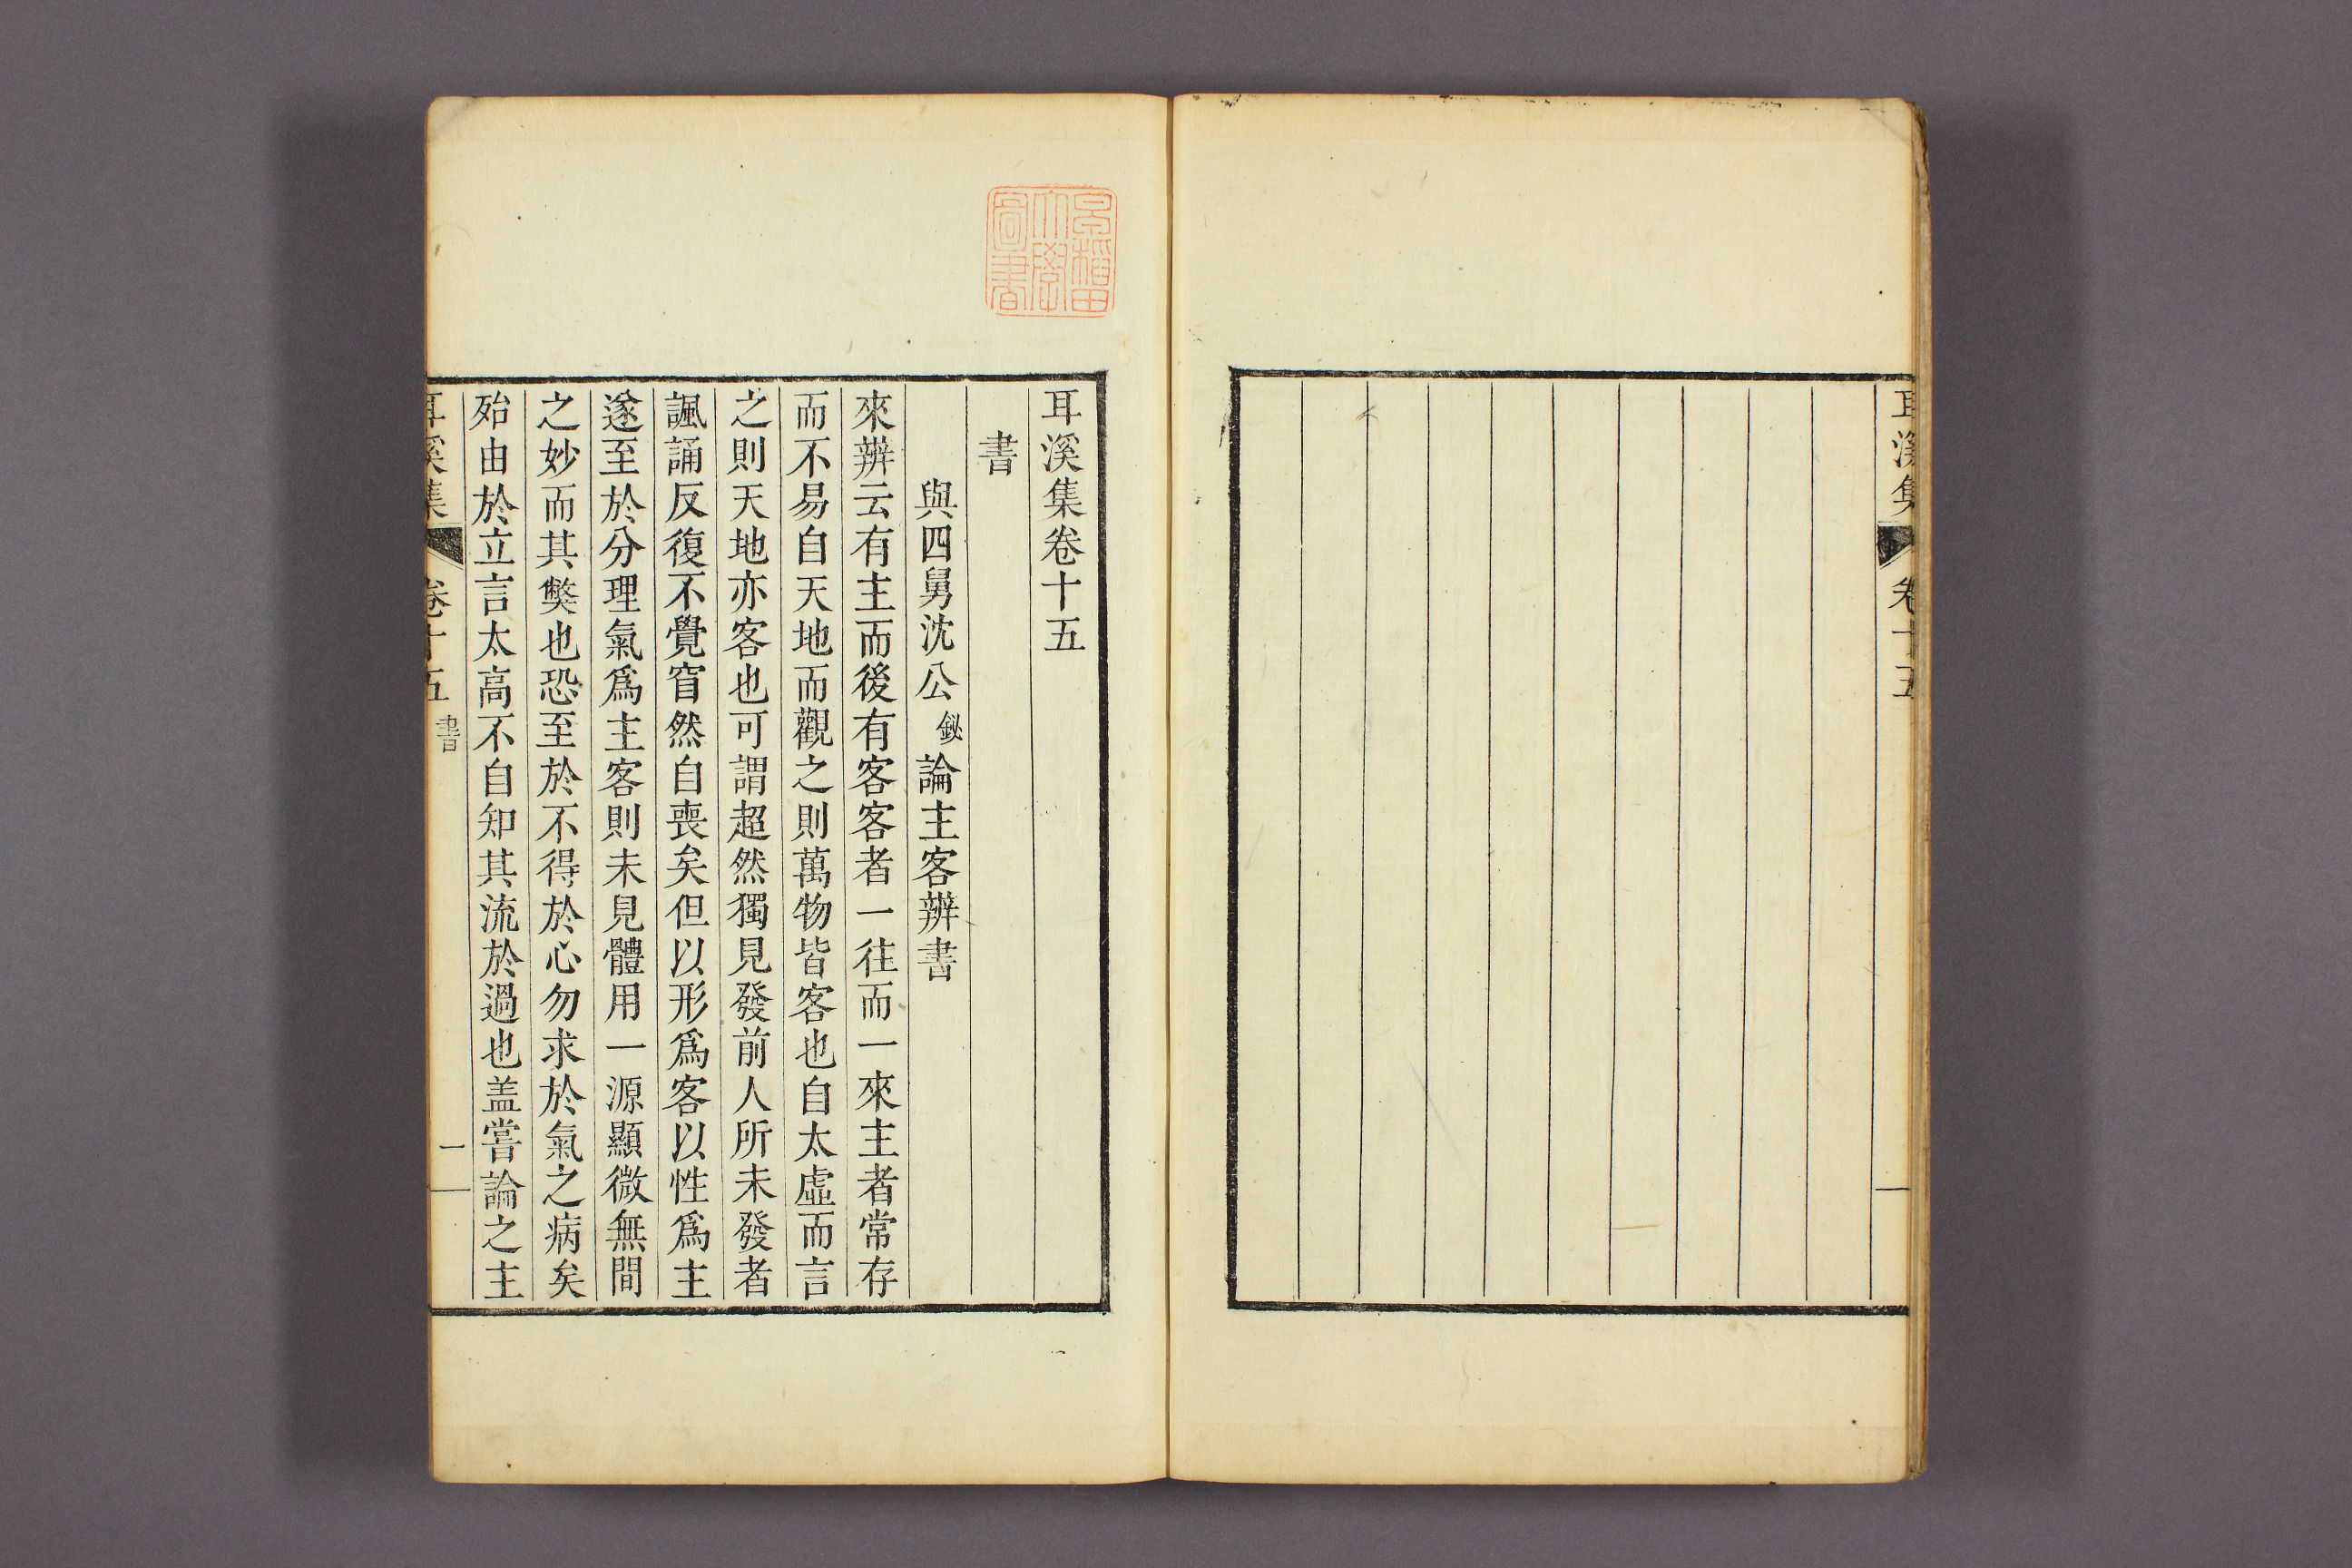 耳溪集
卷十五
早稻田
大學
圖書
耳溪集卷十五
書
與四舅沈公鈊論主客辨書
來辨云有主而後有客客者一往而一來主者常存
而不易自天地而觀之則萬物皆客也自太虛而言
之則天地亦客也可謂超然獨見發前人所未發者
諷誦反復不覺窅然自喪矣但以形爲客以性爲主
遂至於分理氣爲主客則未見體用一源顯微無間
之妙而其獘也恐至於不得於心勿求於氣之病矣
殆由於立言太高不自知其流於過也盖嘗論之主
耳溪集
卷十五
書
一